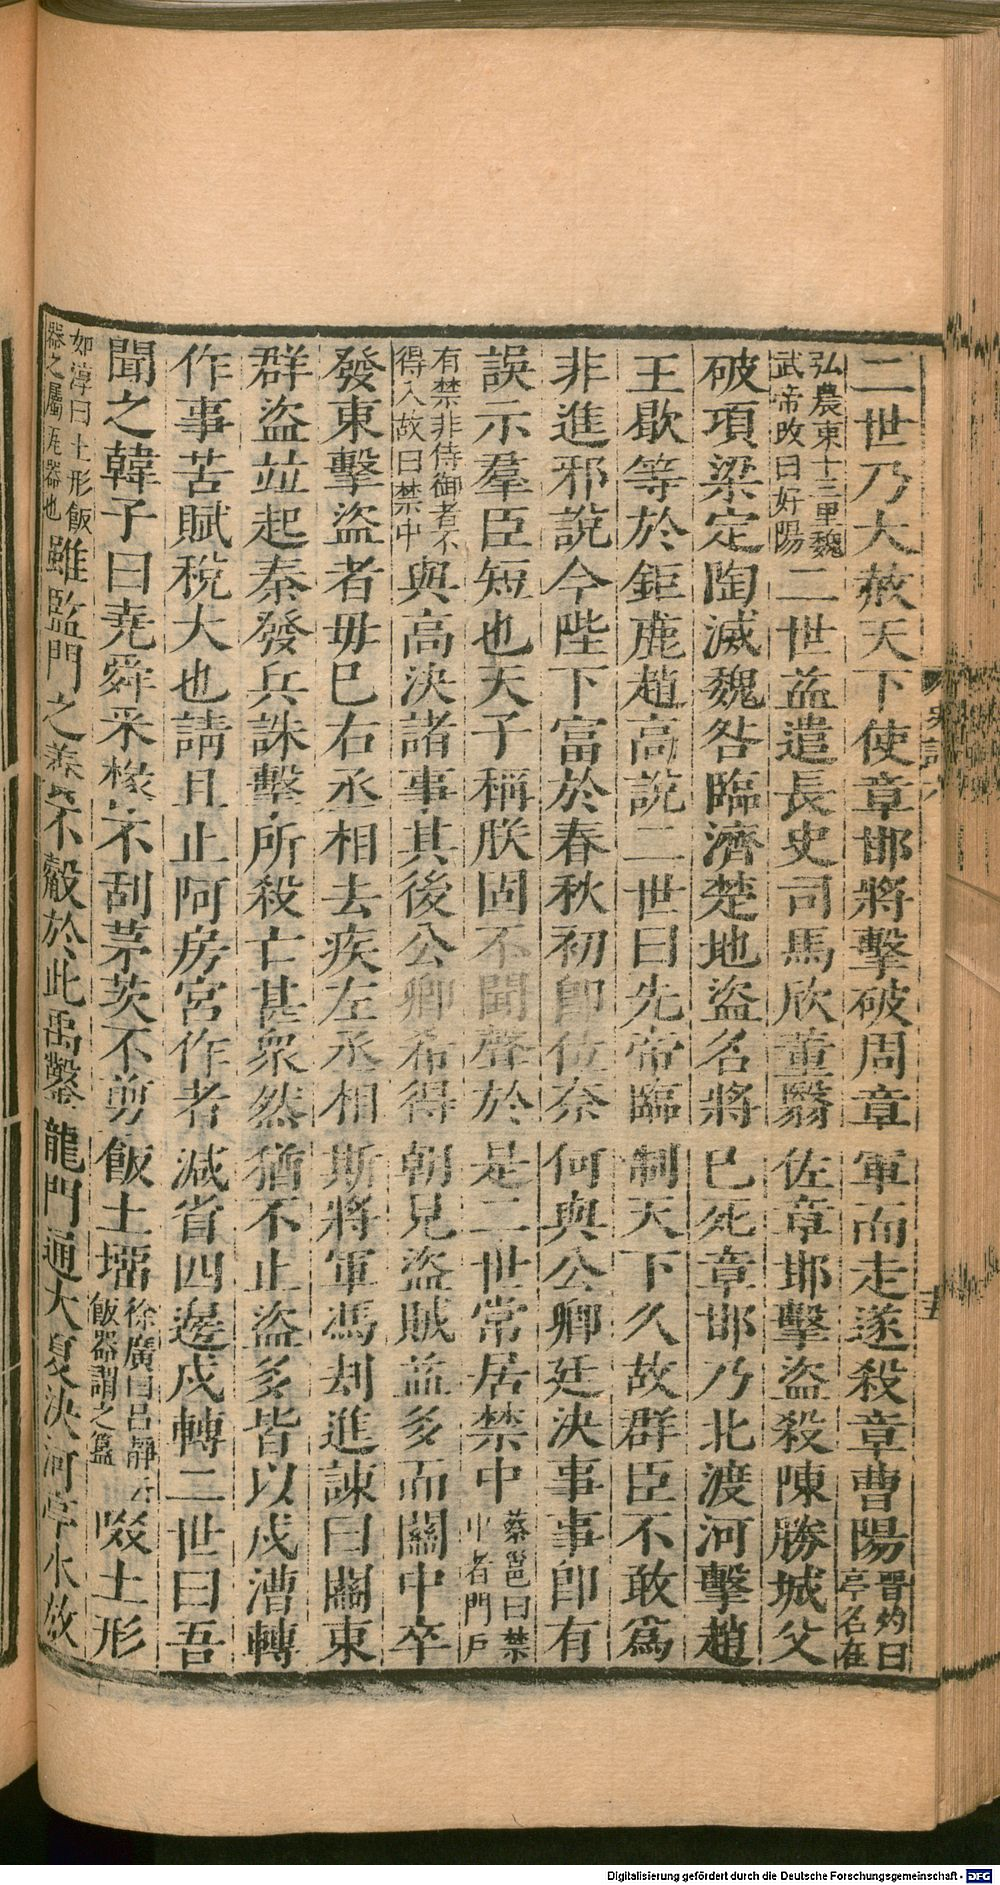 二世乃大赦天下使章邯將擊破周章軍而走遂殺章曹陽晉灼曰亭名在
弘農東十三里魏武帝改曰好陽二世益遣長史司馬欣董翳佐章邯擊盜殺陳勝城父
破項梁定陶滅魏咎臨濟楚地盜名將已死章邯乃北渡河擊趙
王歇等於鉅鹿趙高說二世曰先帝臨制天下久故群臣不敢爲
非進邪說今陛下富於春秋初即位奈何與公卿廷決事事即有
誤示羣臣短也天子稱朕固不聞聲於是二世常居禁中蔡邕曰禁中者門戶
有禁非侍御者不得入故曰禁中與高決諸事其後公卿希得朝見盜賊益多而關中卒
發東擊盜者毋已右丞相去疾左丞相斯將軍馮劫進諫曰關東
群盜竝起秦發兵誅擊所殺亡甚衆然猶不止盜多皆以戍漕轉
作事苦賦稅大也請且止阿房宮作者減省四邊戍轉二世曰吾
聞之韓子曰堯舜采椽不刮茅茨不剪飯土塯徐廣曰呂靜云飯器謂之簋啜土形
如淳曰土形飯器之屬瓦器也雖監門之養不觳於此禹鑿龍門通大夏決河亭水放
Digitalisierung gefördert durch die Deutsche Forschungsgemeinschaft - DFG